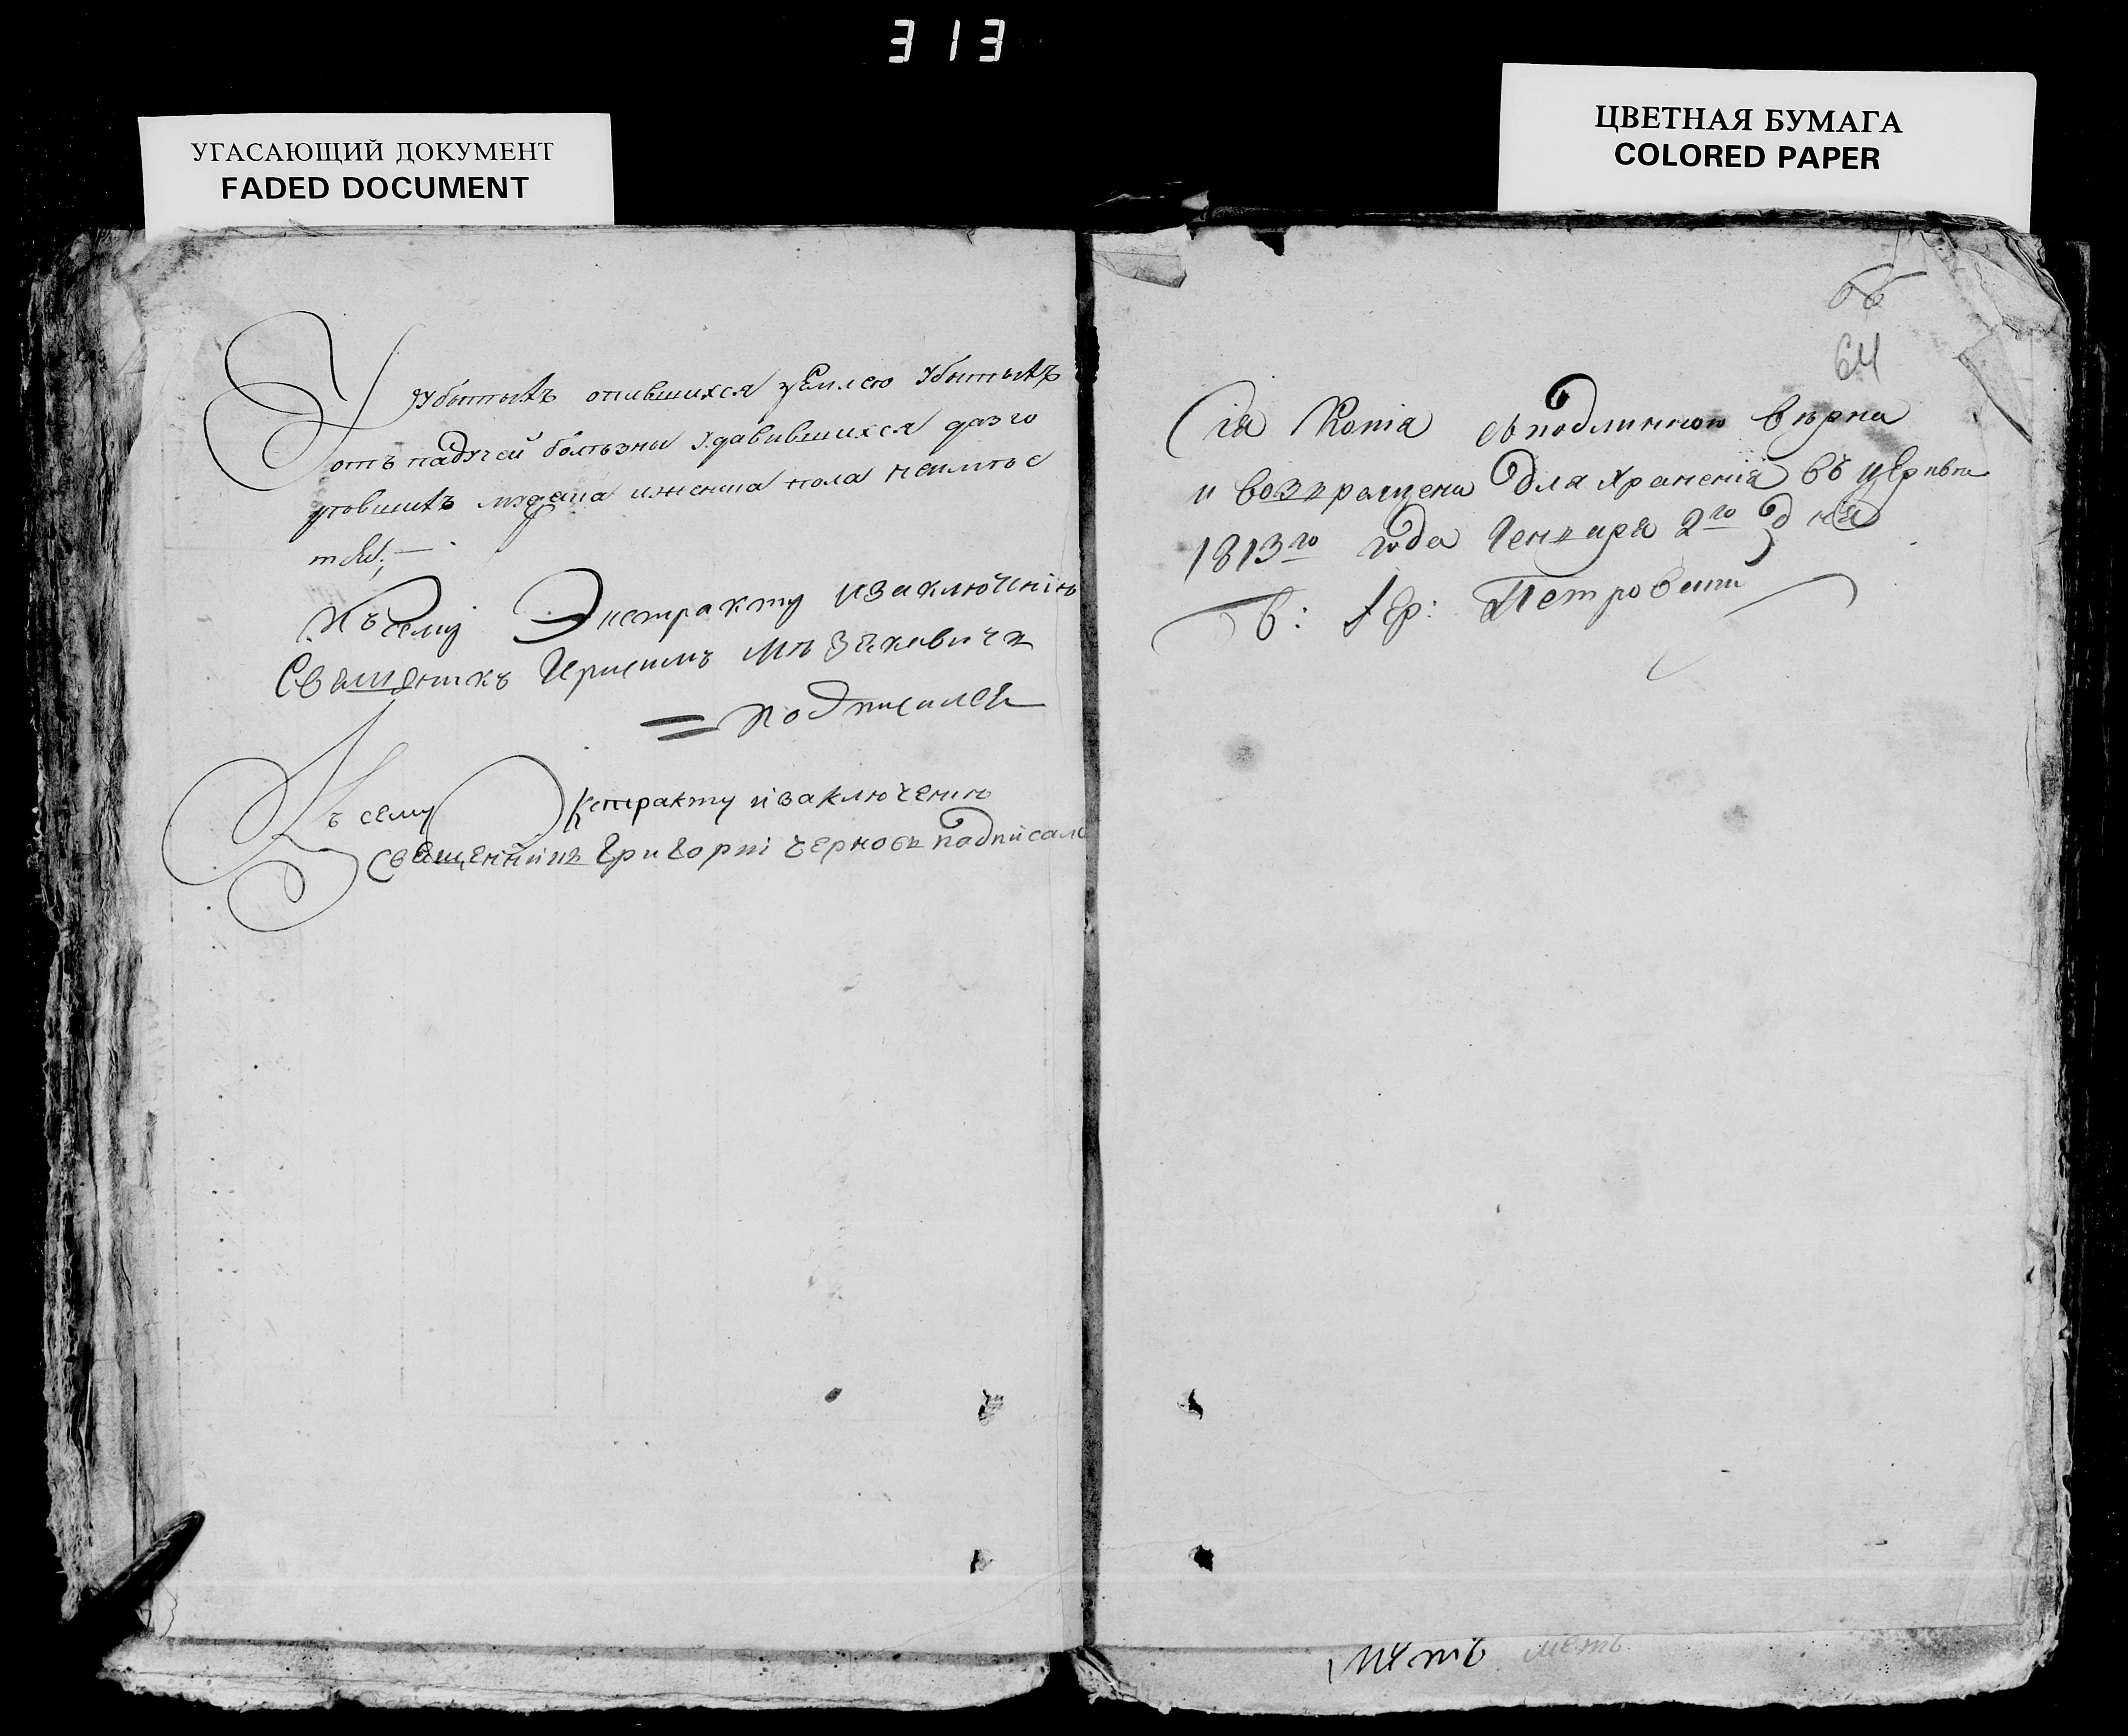 313
УГАСАЮЩИЙ ДОКУМЕНТ
FADED DOCUMENT
ЦВЕТНАЯ БУМАГА
COLORED PAPER
Убитыхъ опившихся землею Убитыхъ
отъ падучей болѣзны Удавившихся
мужеска иженска пола неимѣе
тсѧ;
Къ сему Экстракту изаключенію
Священникъ
подписался
Къ сему Экстракту изаключению
Священникъ Григорий Черновъ падписалс
64
Сіа Копіа сподлинною вѣрна
и возвращена для храненія въ церкви
1813го года Генваря 2го дня
В: Іер: Петровичъ